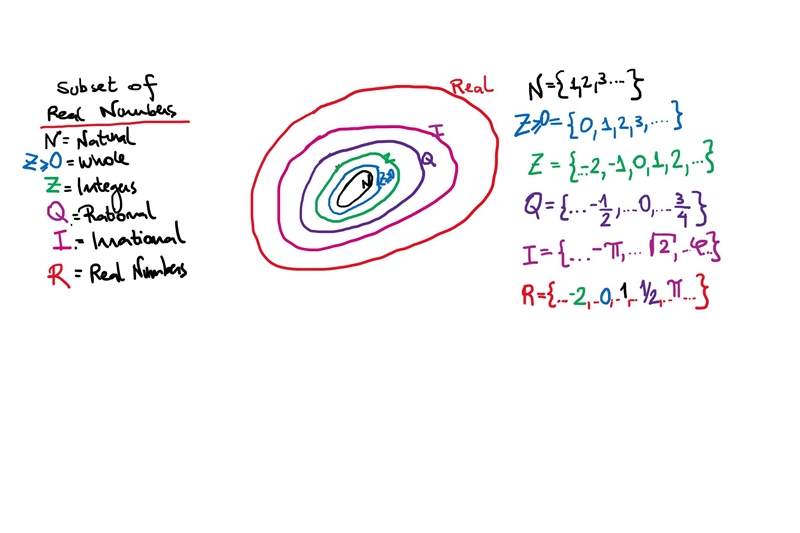 Subset of
Real Numbers
N = Natural
Z≥0 = Whole
Z = Integers
Q = Rational
I = Irrational
R = Real Numbers
Real
I
Q
Z
Z≥0
N
N={1,2,3...}
Z≥0={0,1,2,3,....}
Z={-2,-1,0,1,2,...}
Q={...-1/2,...0,...3/4}
I={...-π,...√2,...φ...}
R={...-2,..0,..1,..1/2,..π...}